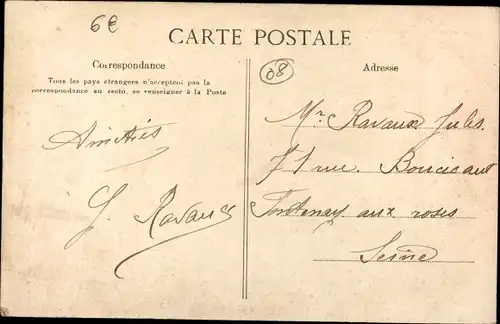 6€
CARTE POSTALE
Correspondance
Tous les pays étrangers n'acceptent pas la
correspondance au recto, se renseigner à la Poste
08
Adresse
Amitiés
G. Ravaux
Mr. Ravaux Jules
71 rue. Boucicaut
Fontenay aux roses
Seine